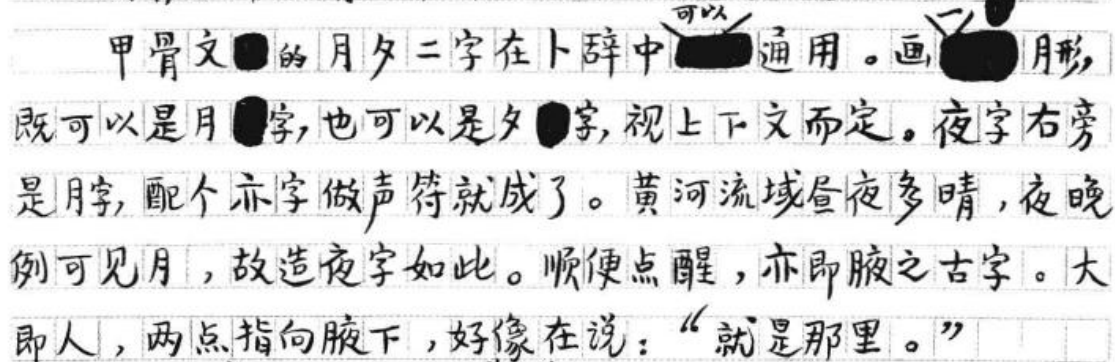 甲骨文的月夕二字在卜辞中可以通用。画一月形,
既可以是月字,也可以是夕字,视上下文而定。夜字右旁
是月字,配个亦字做声符就成了。黄河流域昼夜多晴,夜晚
例可见月,故造夜字如此。顺便点醒,亦即腋之古字。大
即人,两点指向腋下,好像在说:“就是那里。”